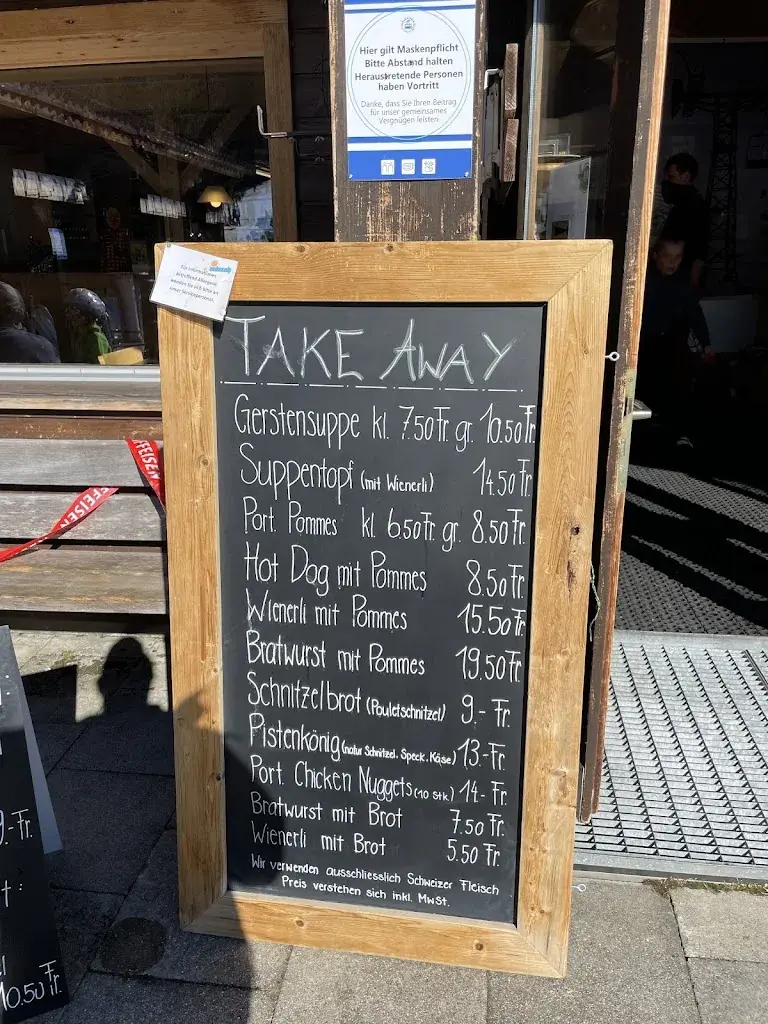 Hier gilt Maskenpflicht
Bitte Abstand halten
Heraustretende Personen
haben Vortritt
Danke, dass Sie Ihren Beitrag
für unser gemeinsames
Vergnügen leisten.
Für Informationen
betreffend Allergene
wenden Sie sich bitte an
unser Servicepersonal.
TAKE AWAY
Gerstensuppe kl. 7.50 Fr. gr. 10.50 Fr.
Suppentopf (mit Wienerli) 14.50 Fr.
Port. Pommes kl. 6.50 Fr. gr. 8.50 Fr.
Hot Dog mit Pommes 8.50 Fr.
Wienerli mit Pommes 15.50 Fr.
Bratwurst mit Pommes 19.50 Fr
Schnitzelbrot (Pouletschnitzel) 9.- Fr.
Pistenkönig (natur Schnitzel, Speck, Käse) 13.-Fr.
Port. Chicken Nuggets (10 Stk.) 14.- Fr.
Bratwurst mit Brot 7.50 Fr.
Wienerli mit Brot 5.50 Fr.
Wir verwenden ausschliesslich Schweizer Fleisch
Preis verstehen sich inkl. MwSt.
FFEISEN
FFEISEN
9.-Fr.
t:
10.50 Fr.